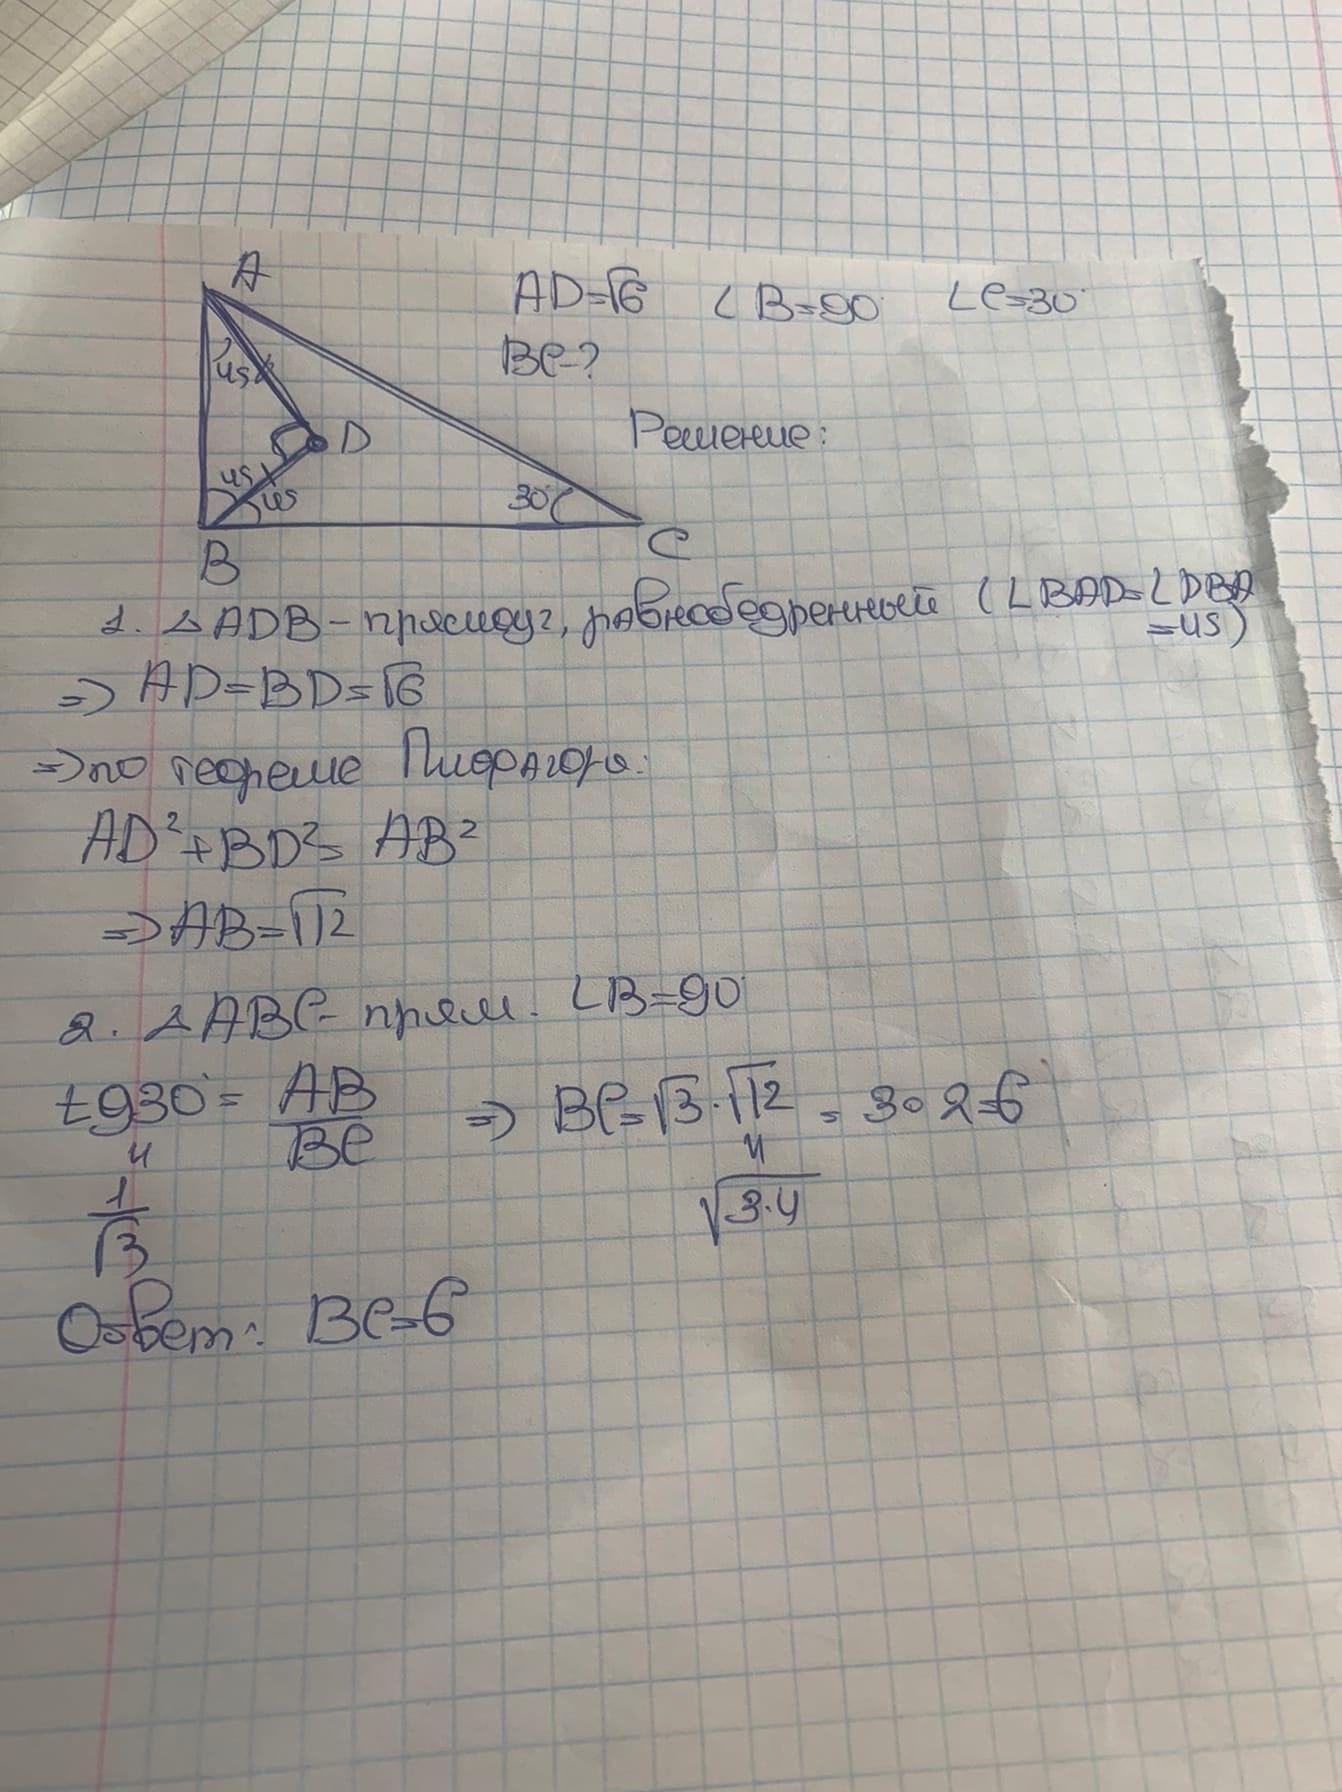 A
AD=√6 ∠B=90° ∠C=30°
BC-?
45
D
Решение:
45
45
30°
B
C
1. △ADB - прямоуг, равнобедренный (∠BAD=∠DBA
=45)
=> AD=BD=√6
=> по теореме Пифагора:
AD²+BD²= AB²
=> AB=√12
2. △ABC - прям. ∠B=90°
tg30°= AB/BC => BC=√3·√12 = 3·2=6
"
"
1/√3
√3·4
Ответ: BC=6